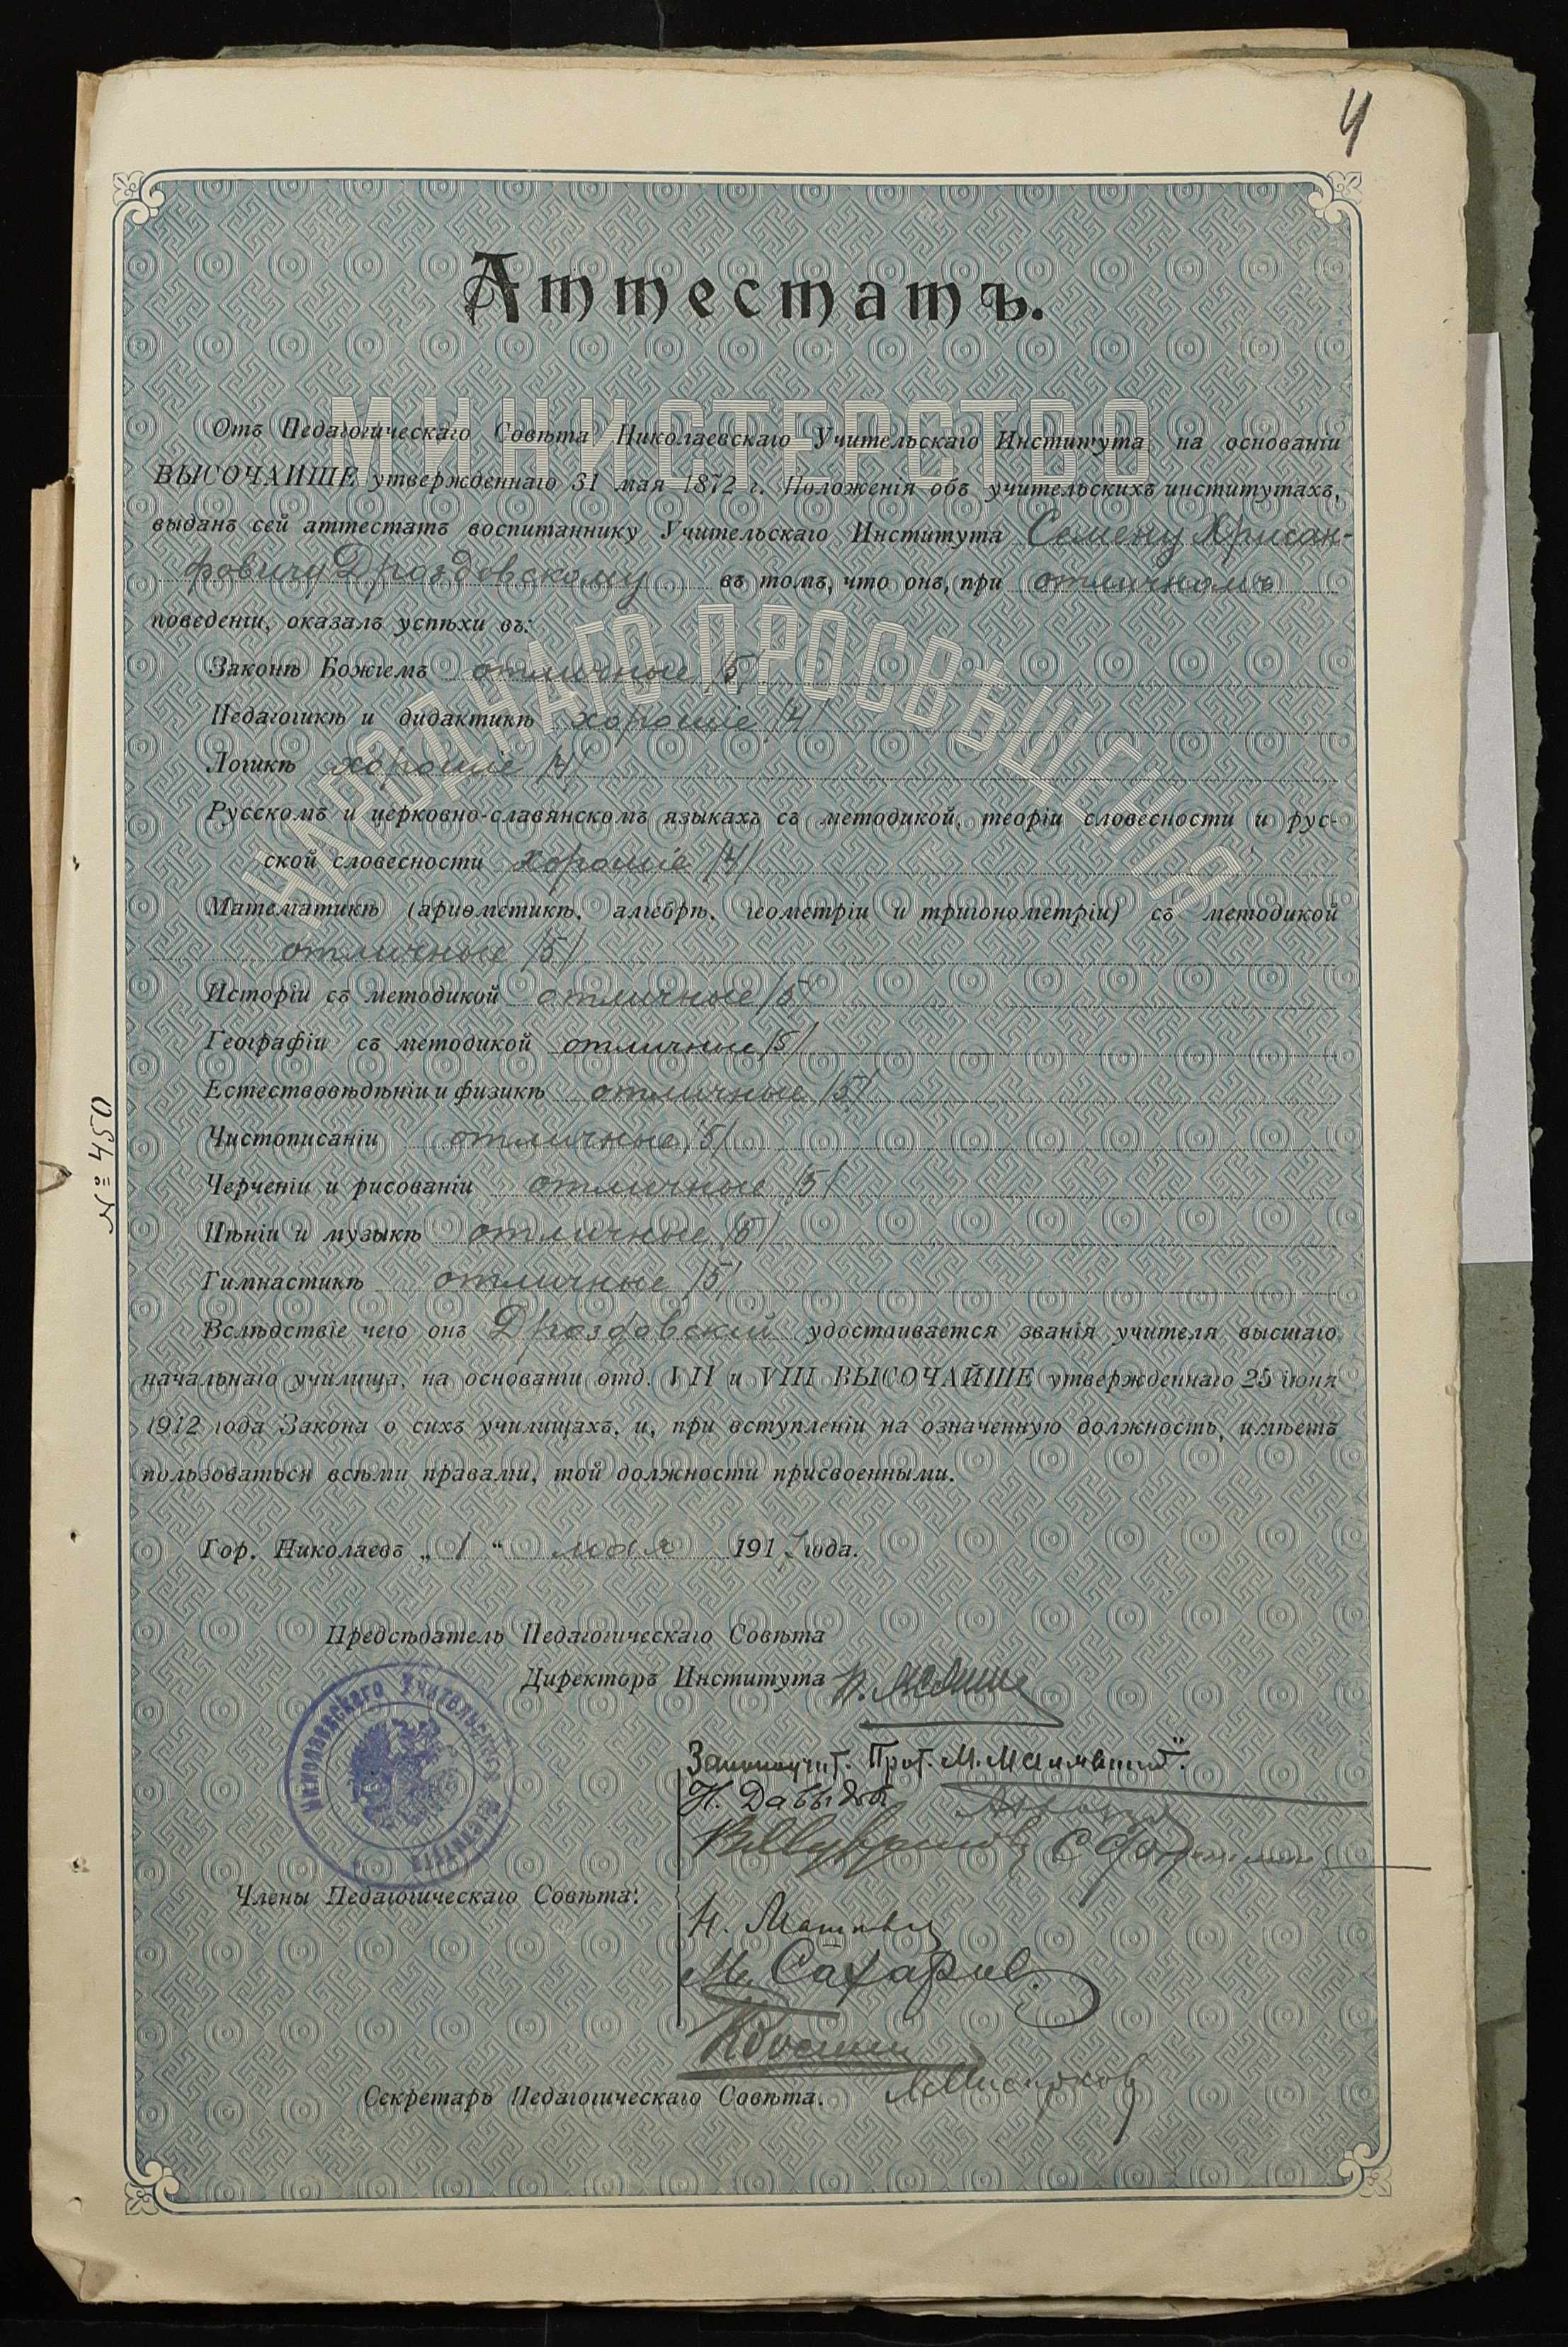 4
Аттестатъ.
МИНИСТЕРСТВО
НАРОДНАГО ПРОСВѢЩЕНІЯ
Отъ Педагогическаго Совѣта Николаевскаго Учительскаго Института, на основаніи
ВЫСОЧАЙШЕ утвержденнаго 31 мая 1872 г. Положенія объ учительскихъ институтахъ,
выданъ сей аттестатъ воспитаннику Учительскаго Института Семену Хрисан-
фовичу Дроздовскому въ томъ, что онъ, при отличномъ
поведеніи, оказалъ успѣхи въ:
Законѣ Божіемъ отличные /5/
Педагогикѣ и дидактикѣ хорошіе /4/
Логикѣ хорошіе /4/
Русскомъ и церковно-славянскомъ языкахъ съ методикой, теоріи словесности и рус-
ской словесности хорошіе /4/
Математикѣ (ариѳметикѣ, алгебрѣ, геометріи и тригонометріи) съ методикой
отличные /5/
Исторіи съ методикой отличные /5/
Географіи съ методикой отличные /5/
Естествовѣдѣніи и физикѣ отличные /5/
Чистописаніи отличные /5/
Черченіи и рисованіи отличные /5/
Пѣніи и музыкѣ отличные /5/
Гимнастикѣ отличные /5/
Вслѣдствіе чего онъ Дроздовскій удостаивается званія учителя высшаго
начальнаго училища, на основаніи отд. VII и VIII ВЫСОЧАЙШЕ утвержденнаго 25 іюня
1912 года Закона о сихъ училищахъ, и, при вступленіи на означенную должность, имѣетъ
пользоваться всѣми правами, той должности присвоенными.
№ 450
Гор. Николаевъ „1“ мая 1917 года.
Предсѣдатель Педагогическаго Совѣта
Директоръ Института
Николаевскаго Учительскаго Института
Законоучит. Прот. М.
Н. Давыдов
Члены Педагогическаго Совѣта:
М. Сахаров
Секретарь Педагогическаго Совѣта.